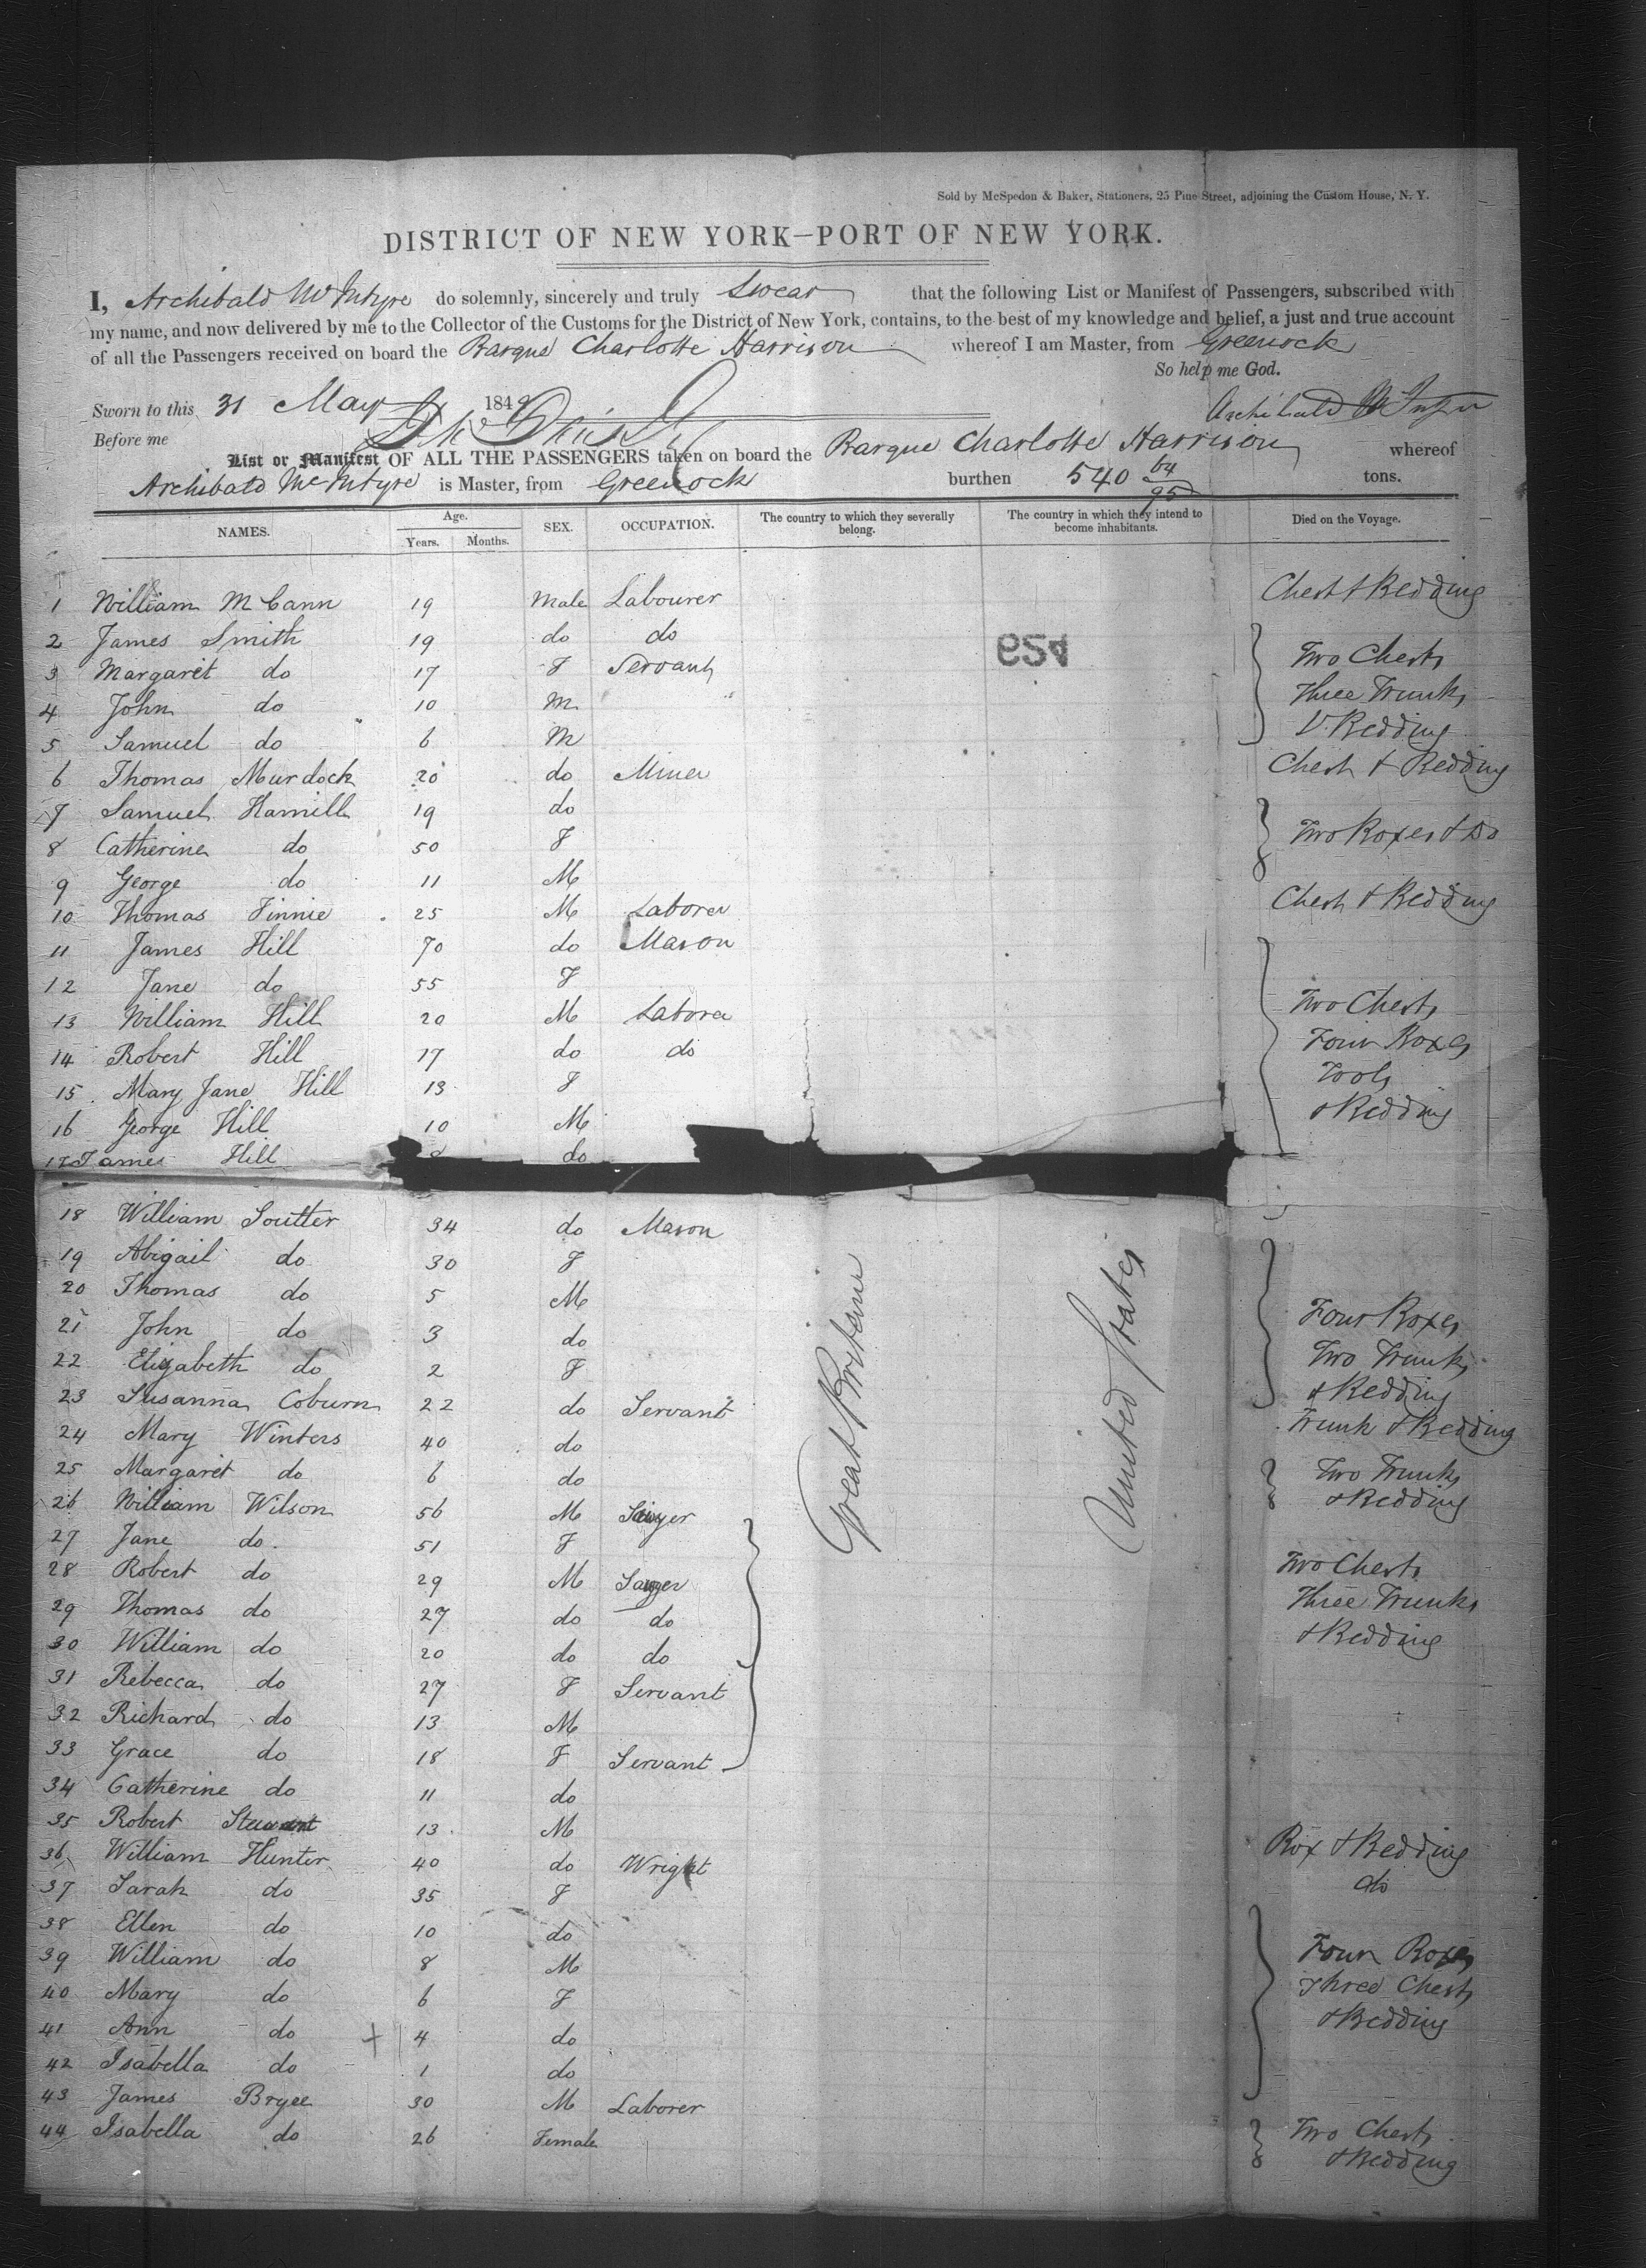 Sold by McSpedon & Baker, Stationers, 25 Pine Street, adjoining the Custom House, N. Y.
DISTRICT OF NEW YORK—PORT OF NEW YORK.
I, Archibald McIntyre do solemnly, sincerely and truly Swear that the following List or Manifest of Passengers, subscribed with
my name, and now delivered by me to the Collector of the Customs for the District of New York, contains, to the best of my knowledge and belief, a just and true account
of all the Passengers received on board the Barque Charlotte Harrison whereof I am Master, from Greenock
So help me God.
Sworn to this 31 May 1849 Archibald McIntyre
Before me
List or Manifest OF ALL THE PASSENGERS taken on board the Barque Charlotte Harrison whereof
Archibald McIntyre is Master, from Greenock burthen 540 64/95 tons.
NAMES. Age. Years. Months. SEX. OCCUPATION. The country to which they severally belong. The country in which they intend to become inhabitants. Died on the Voyage.
1 William McCann 19 Male Labourer Chest & Bedding
2 James Smith 19 do do
3 Margaret do 17 F Servant Two Chests
4 John do 10 M Three Trunks
5 Samuel do 6 M & Bedding
6 Thomas Murdock 20 do Miner Chest & Bedding
7 Samuel Hamill 19 do
8 Catherine do 50 F Two Boxes & Do
9 George do 11 M
10 Thomas Finnie 25 M Laborer Chest & Bedding
11 James Hill 70 do Mason
12 Jane do 55 F
13 William Hill 20 M Laborer Two Chests
14 Robert Hill 17 do do Four Boxes
15 Mary Jane Hill 13 F Tools
16 George Hill 10 M & Bedding
17 James Hill do
18 William Soutter 34 do Mason
19 Abigail do 30 F
20 Thomas do 5 M
21 John do 3 do Four Boxes
22 Elizabeth do 2 F Two Trunks
& Bedding
23 Susanna Coburn 22 do Servant Trunk & Bedding
24 Mary Winters 40 do
25 Margaret do 6 do Two Trunks
& Bedding
26 William Wilson 56 M Sawyer
27 Jane do. 51 F
28 Robert do 29 M Sawyer Two Chests
29 Thomas do 27 do do Three Trunks
30 William do 20 do do & Bedding
31 Rebecca do 27 F Servant
32 Richard do 13 M
33 Grace do 18 F Servant
34 Catherine do 11 do
35 Robert Stewart 13 M Box & Bedding
36 William Hunter 40 do Wright do
37 Sarah do 35 F
38 Ellen do 10 do
39 William do 8 M Four Boxes
40 Mary do 6 F Three Chests
41 Ann do + 4 do & Bedding
42 Isabella do 1 do
43 James Bryce 30 M Laborer
44 Isabella do 26 Female Two Chests
& Bedding
Great Britain
United States